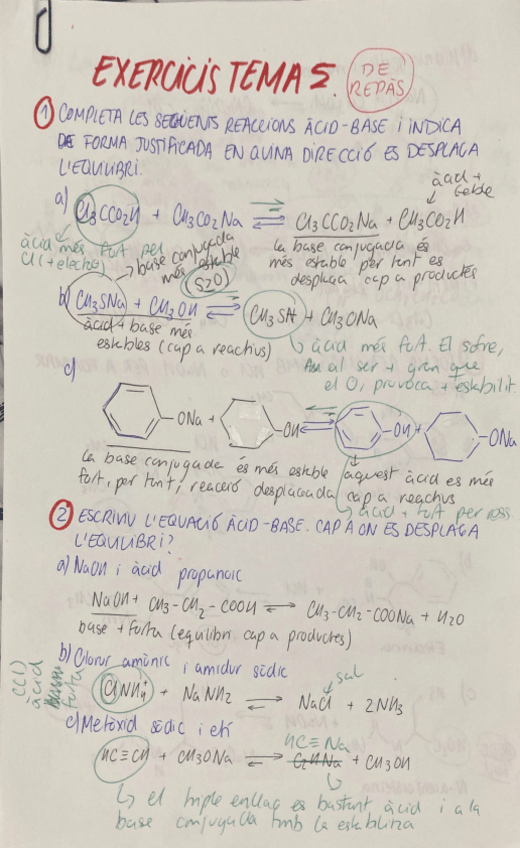 EXERCICIS TEMA 5.
DE
REPÀS
1) COMPLETA LES SEGÜENTS REACCIONS ÀCID-BASE I INDICA
DE FORMA JUSTIFICADA EN QUINA DIRECCIÓ ES DESPLAÇA
L'EQUILIBRI.
àcid +
feble
a) Cl3CCO2H + CH3CO2Na ⇌ Cl3CCO2Na + CH3CO2H
àcid més fort pel
Cl (+electro)
base conjugada
més estable
la base conjugada és
més estable per tant es
desplaça cap a productes
(S>O)
b) CH3SNa + CH3OH ⇌ CH3SH + CH3ONa
àcid + base més
estables (cap a reactius)
àcid més fort. El sofre,
al ser + gran que
el O, provoca + estabilit.
c)
-ONa + -OH ⇌ -OH + -ONa
la base conjugada és més estable
fort, per tant, reacció desplaçada
aquest àcid és més
cap a reactius
àcid + fort per ress.
2) ESCRIVIU L'EQUACIÓ ÀCID-BASE. CAP A ON ES DESPLAÇA
L'EQUILIBRI?
a) NaOH i àcid propanoic
NaOH + CH3-CH2-COOH ⇌ CH3-CH2-COONa + H2O
base + forta (equilibri cap a productes)
b) Clorur amònic i amidur sòdic
sal
(Cl)
àcid
forta
ClNH4 + NaNH2 ⇌ NaCl + 2NH3
c) Metòxid sòdic i etí
HC≡Na
HC≡CH + CH3ONa ⇌ C2HNa + CH3OH
el triple enllaç és bastant àcid i a la
base conjugada tmb la estabilitza